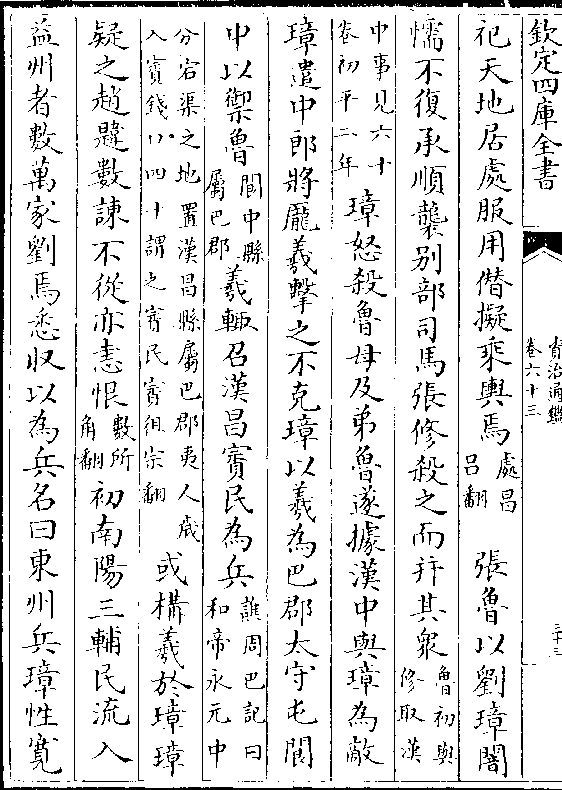 欽定四庫全書
資治通鑑
卷六十三
三十三
祀天地居處服用僭擬乘輿焉處昌
呂翻張魯以劉璋闇
懦不復承順襲别部司馬張修殺之而并其衆魯初與
修取漢
中事見六十
卷初平二年璋怒殺魯母及弟魯遂據漢中與璋為敵
璋遣中郎將龐羲擊之不克璋以羲為巴郡太守屯閬
中以禦魯閬中縣
屬巴郡羲輒召漢昌賨民為兵譙周巴記曰
和帝永元中
分宕渠之地置漢昌縣屬巴郡夷人歲
入賨錢口四十謂之賨民賨徂宗翻或構羲於璋璋
疑之趙韙數諫不從亦恚恨數所
角翻初南陽三輔民流入
益州者數萬家劉焉悉收以為兵名曰東州兵璋性寛